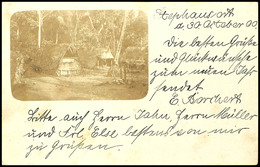 Stephansort
d. 30. October 00.
Die besten Grüße
und Glückwünsche
zur neuen Jahr
sendet
E. Borchert
Bitte auch Herrn Jahn, Herrn Müller
und Frl. Else bestens von mir
zu grüßen.